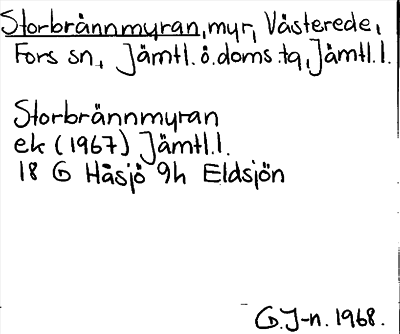 Storbrännmyran, myr, Västerede,
Fors sn, Jämtl. ö. doms. tg, Jämtl. l.
Storbrännmyran
ek (1967) Jämtl. l.
18 G Håsjö 9h Eldsjön
G. J-n. 1968.